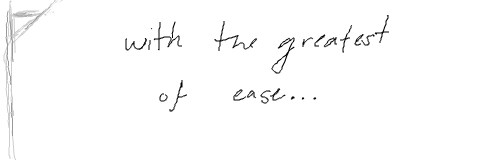 with the greatest
of ease...